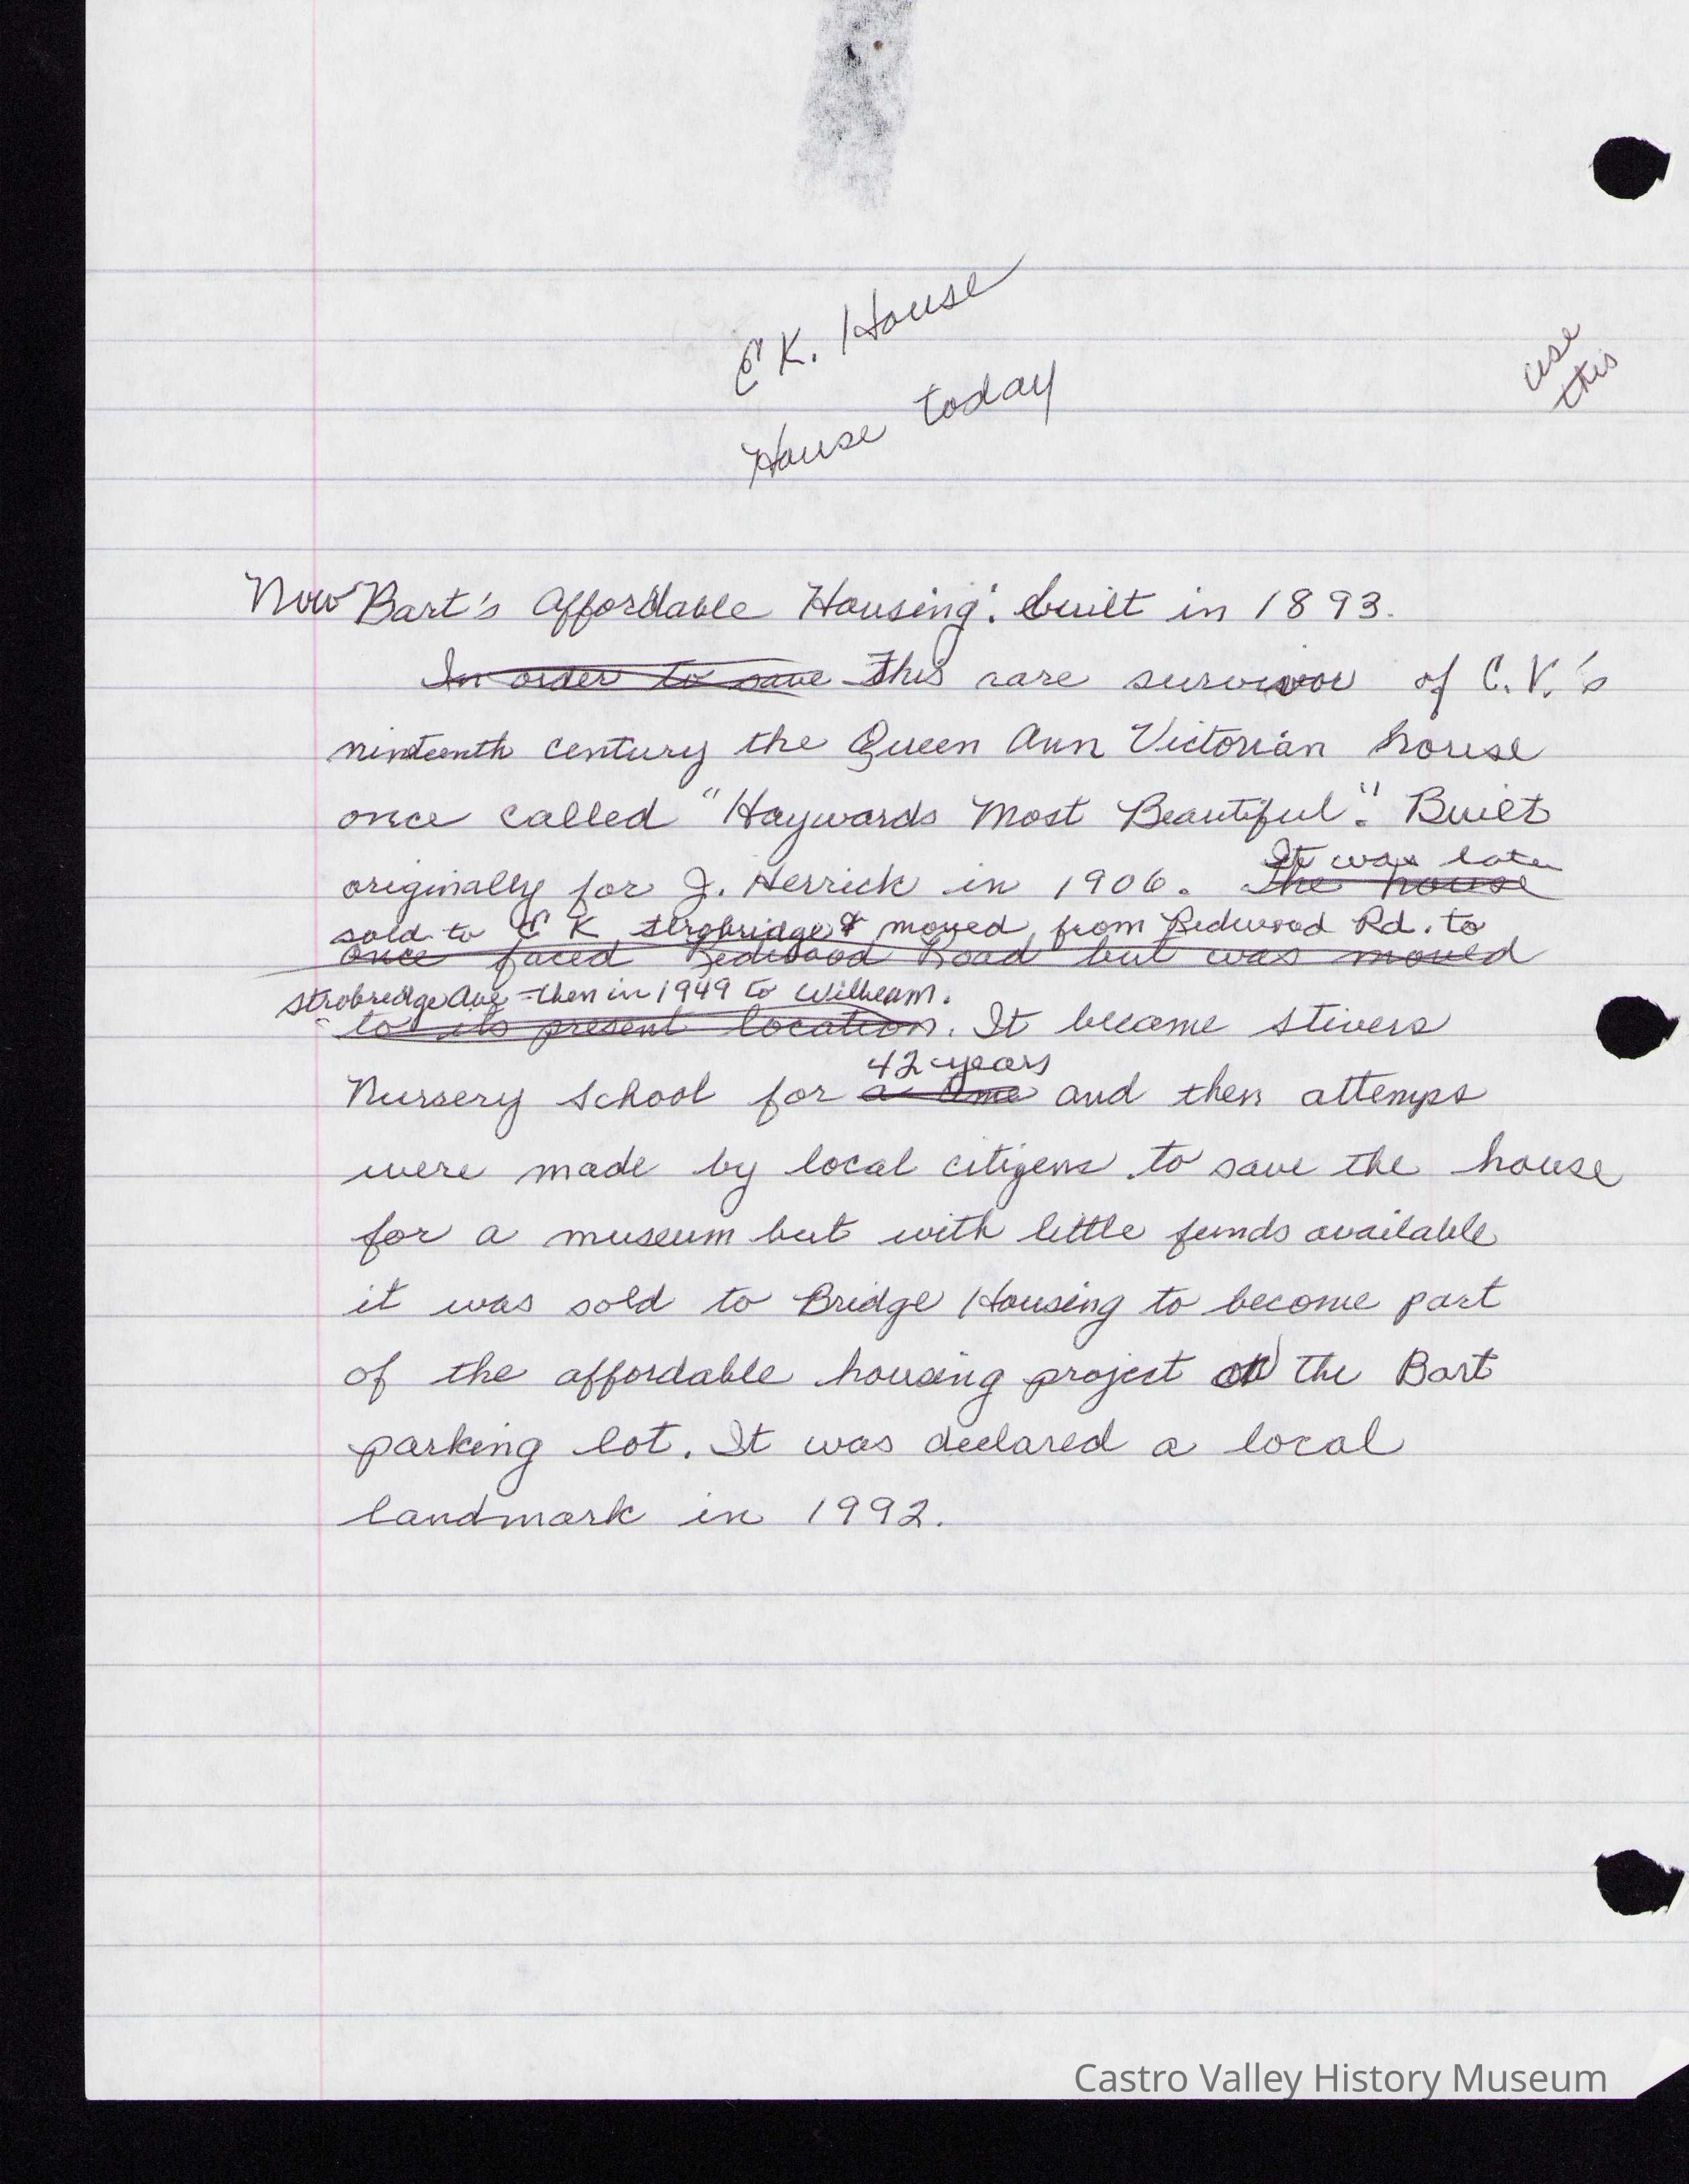 E K. House
use
this
House today
Now Bart's Affordable Housing: built in 1893.
In order to save This rare survivor of C.V.'s
ninteenth century the Queen Ann Victorian house
once called "Haywards Most Beautiful". Built
It was later
originally for J. Herrick in 1906. The house
sold to E K Strobridge & moved from Redwood Rd. to
once faced Redwood Road but was moved
Strobredge Ave - then in 1949 to Wilbeam.
to its present location. It became Stivers
42 years
Nursery School for a time and then attemps
were made by local citizens to save the house
for a museum but with little funds available
it was sold to Bridge Housing to become part
of the affordable housing project on the Bart
parking lot. It was declared a local
landmark in 1992.
Castro Valley History Museum